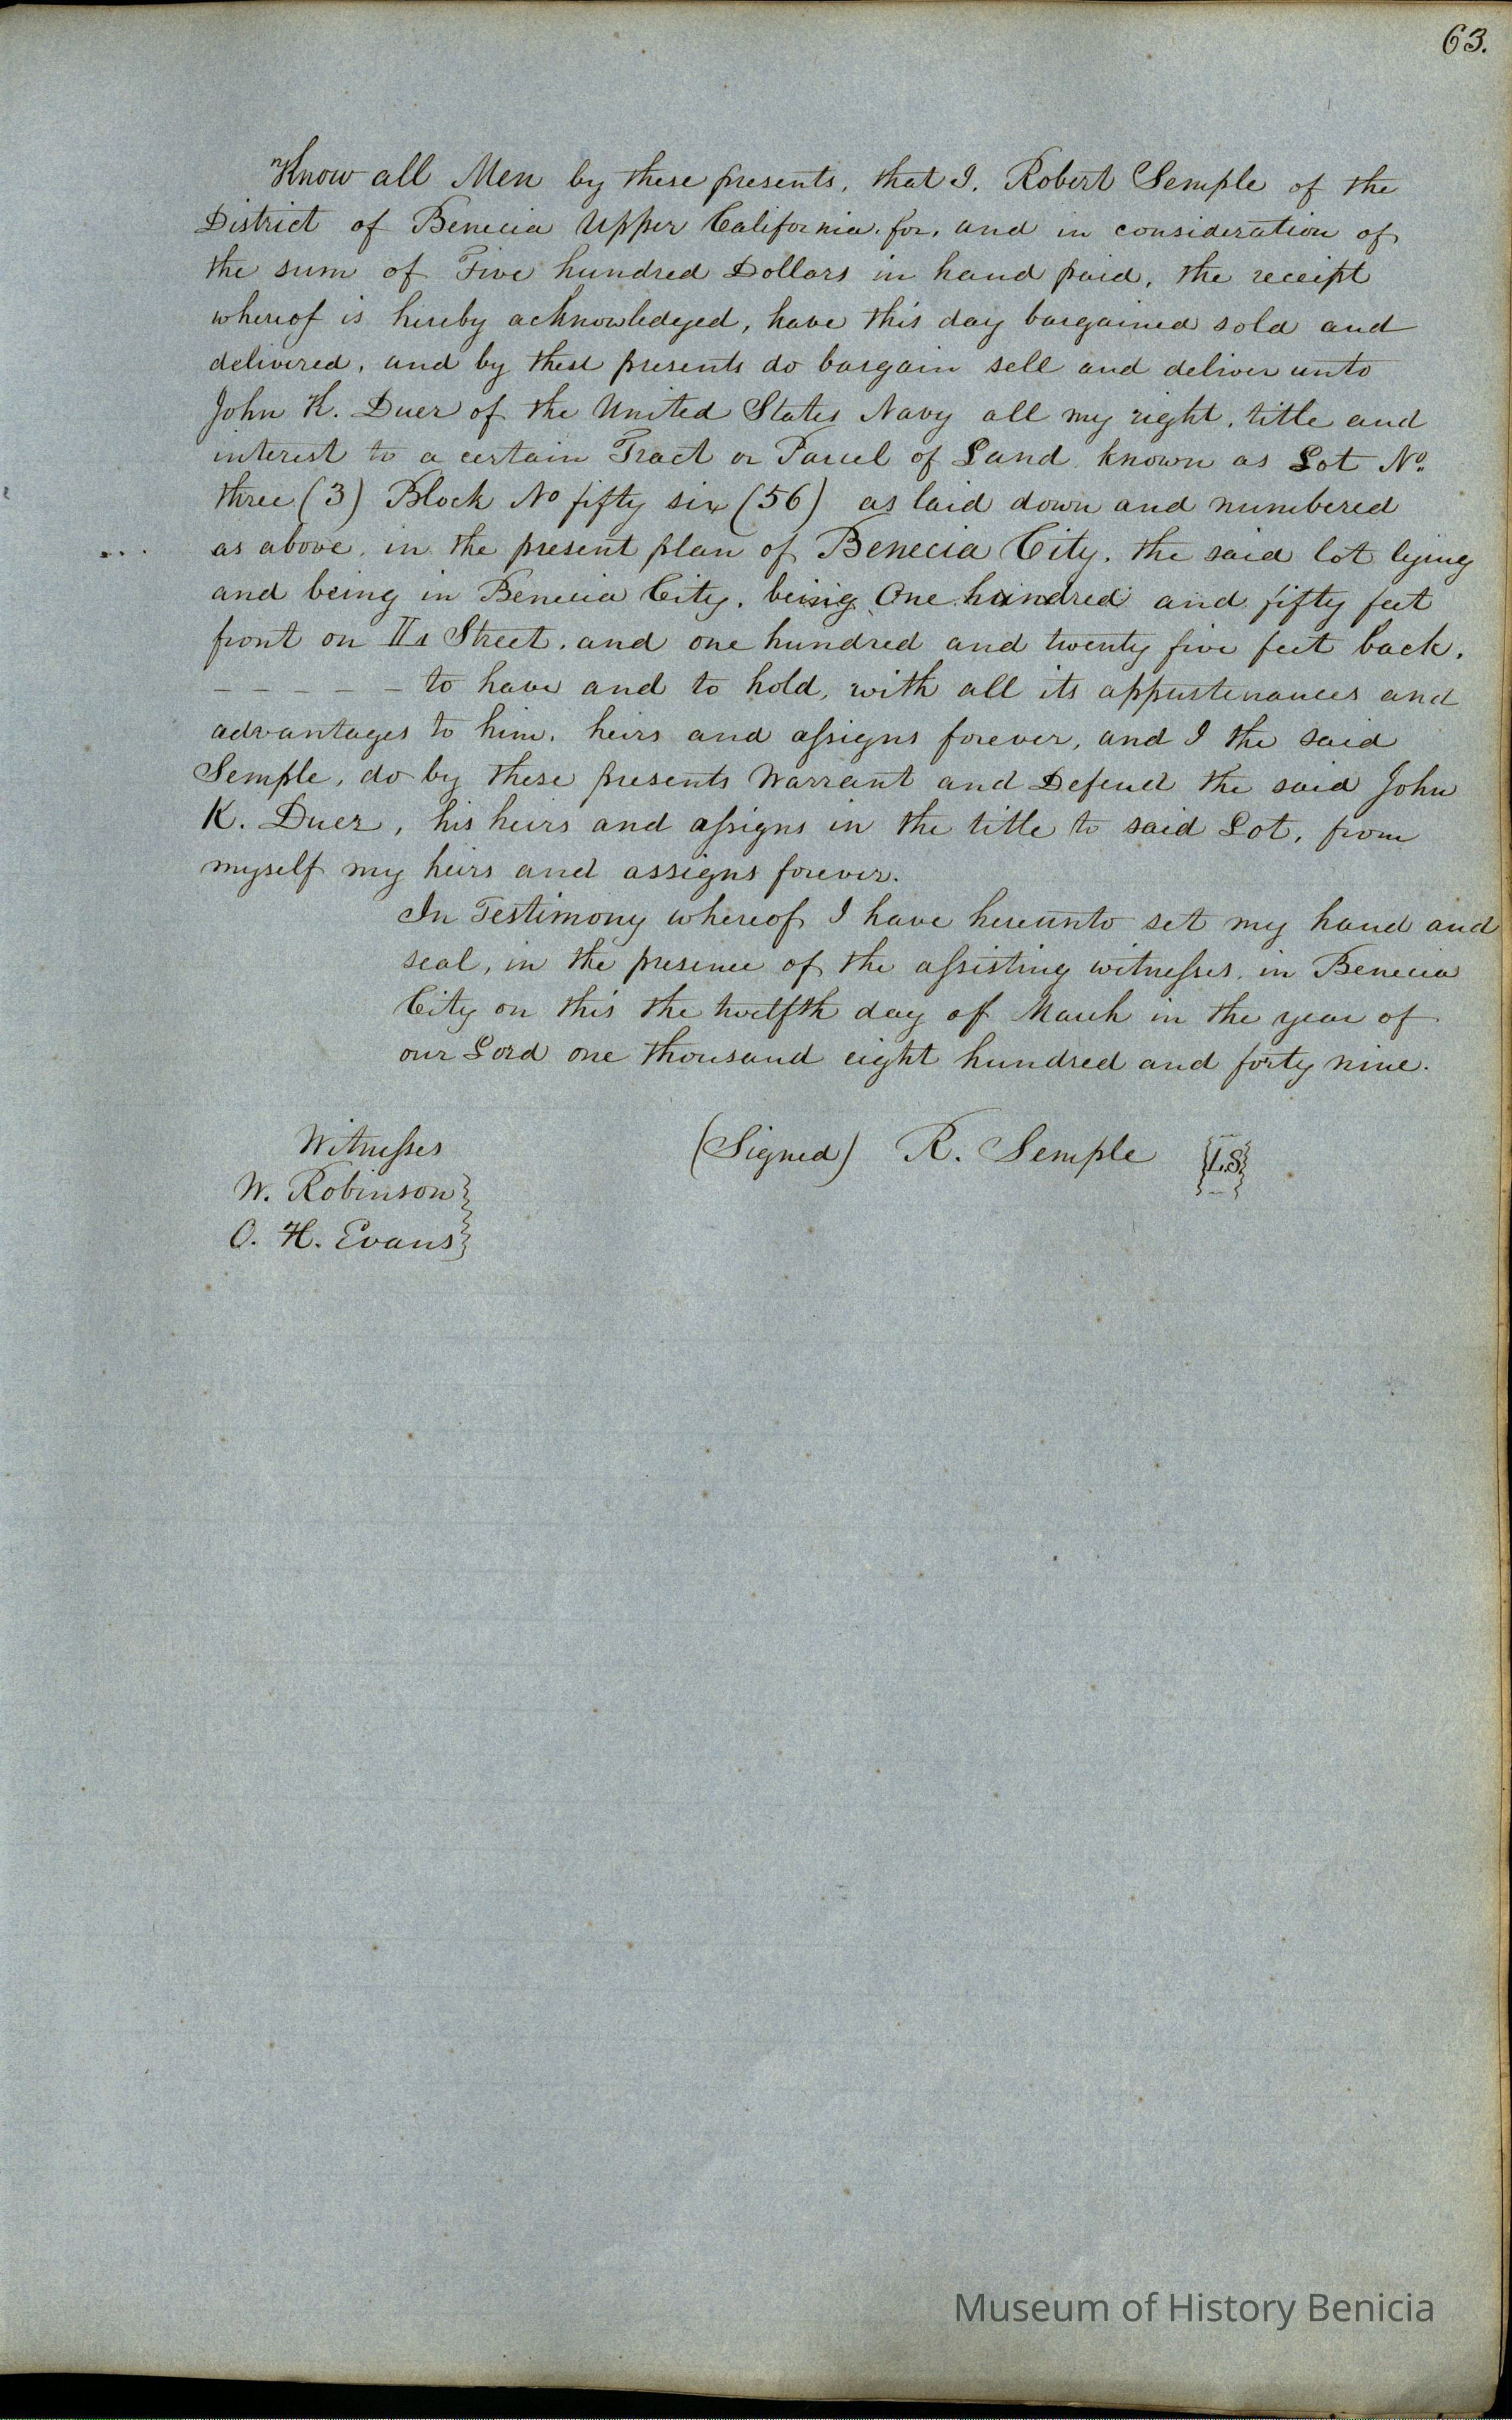 63.
Know all Men by these presents, that I. Robert Semple of the
District of Benecia Upper California. for, and in consideration of
the sum of Five hundred Dollars in hand paid, the receipt
whereof is hereby acknowledged, have this day bargained sold and
delivered, and by these presents do bargain sell and deliver unto
John K. Duer of the United States Navy all my right, title and
interest to a certain Tract or Parcel of Land known as Lot No.
three (3) Block No fifty six (56) as laid down and numbered
as above, in the present plan of Benecia City, the said lot lying
and being in Benecia City, being One hundred and fifty feet
front on Street, and one hundred and twenty five feet back.
– – – – – to have and to hold, with all its appurtenances and
advantages to him, heirs and assigns forever, and I the said
Semple, do by these presents Warrant and Defend the said John
K. Duer, his heirs and assigns in the title to said Lot, from
myself my heirs and assigns forever.
In Testimony whereof I have hereunto set my hand and
seal, in the presence of the assisting witnesses, in Benecia
City on this the twelfth day of March in the year of
our Lord one thousand eight hundred and forty nine.
Witnesses (Signed) R. Semple {L.S}
W. Robinson
O. H. Evans
Museum of History Benicia